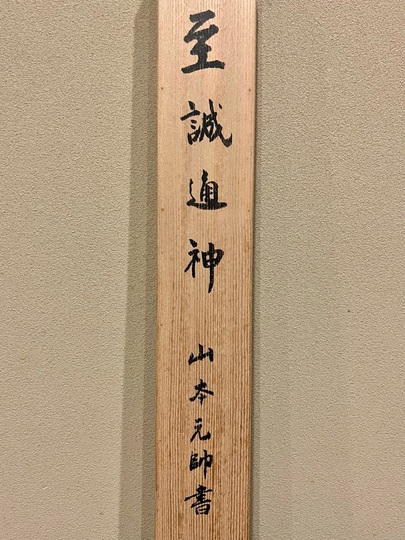 至誠通神 山本元帥書